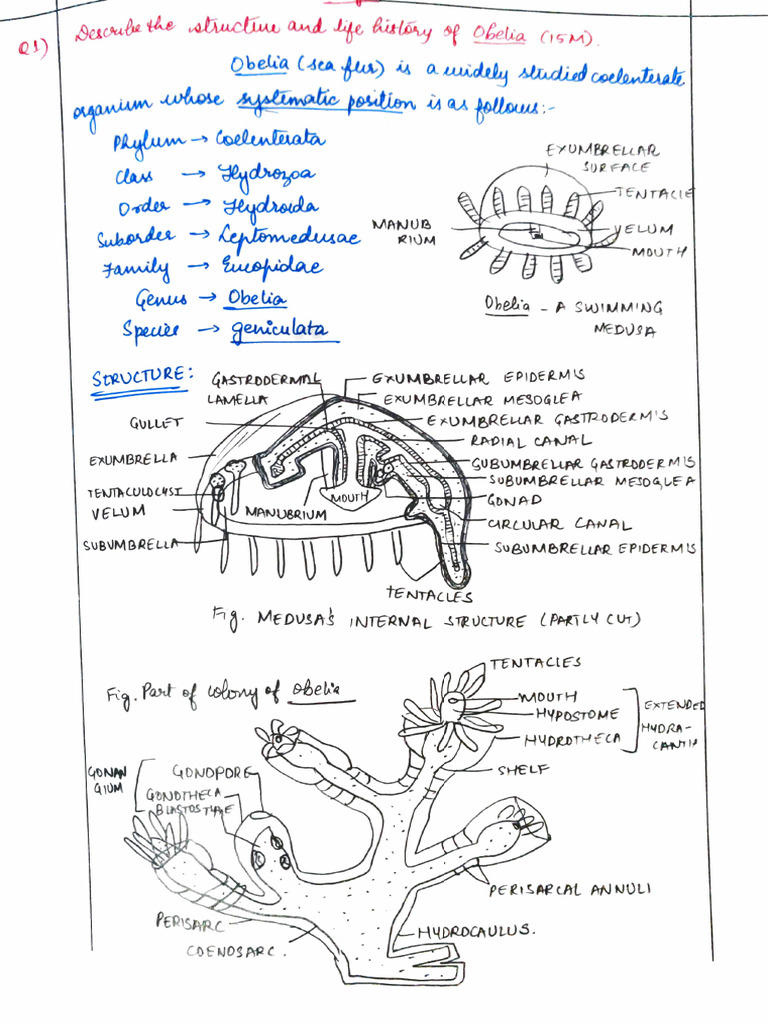 Q1) Describe the structure and life history of Obelia (15M).
Obelia (sea fur) is a widely studied coelenterate
organism whose systematic position is as follows:-
Phylum → Coelenterata
Class → Hydrozoa
Order → Hydroida
Suborder → Leptomedusae
Family → Eucopidae
Genus → Obelia
Species → geniculata
EXUMBRELLAR
SURFACE
TENTACLE
MANUB
RIUM
VELUM
MOUTH
Obelia - A SWIMMING
MEDUSA
STRUCTURE:
GASTRODERMAL
LAMELLA
GULLET
EXUMBRELLA
TENTACULOCYST
VELUM
SUBUMBRELLA
MANUBRIUM
MOUTH
EXUMBRELLAR EPIDERMIS
EXUMBRELLAR MESOGLEA
EXUMBRELLAR GASTRODERMIS
RADIAL CANAL
SUBUMBRELLAR GASTRODERMIS
SUBUMBRELLAR MESOGLEA
GONAD
CIRCULAR CANAL
SUBUMBRELLAR EPIDERMIS
TENTACLES
Fig. MEDUSA'S INTERNAL STRUCTURE (PARTLY CUT)
Fig. Part of colony of Obelia
TENTACLES
MOUTH
HYPOSTOME
HYDROTHECA
EXTENDED
HYDRA-
CANTH
SHELF
GONAN
GIUM
GONOPORE
GONOTHECA
BLASTOSTYLE
PERISARCAL ANNULI
PERISARC
COENOSARC.
HYDROCAULUS.